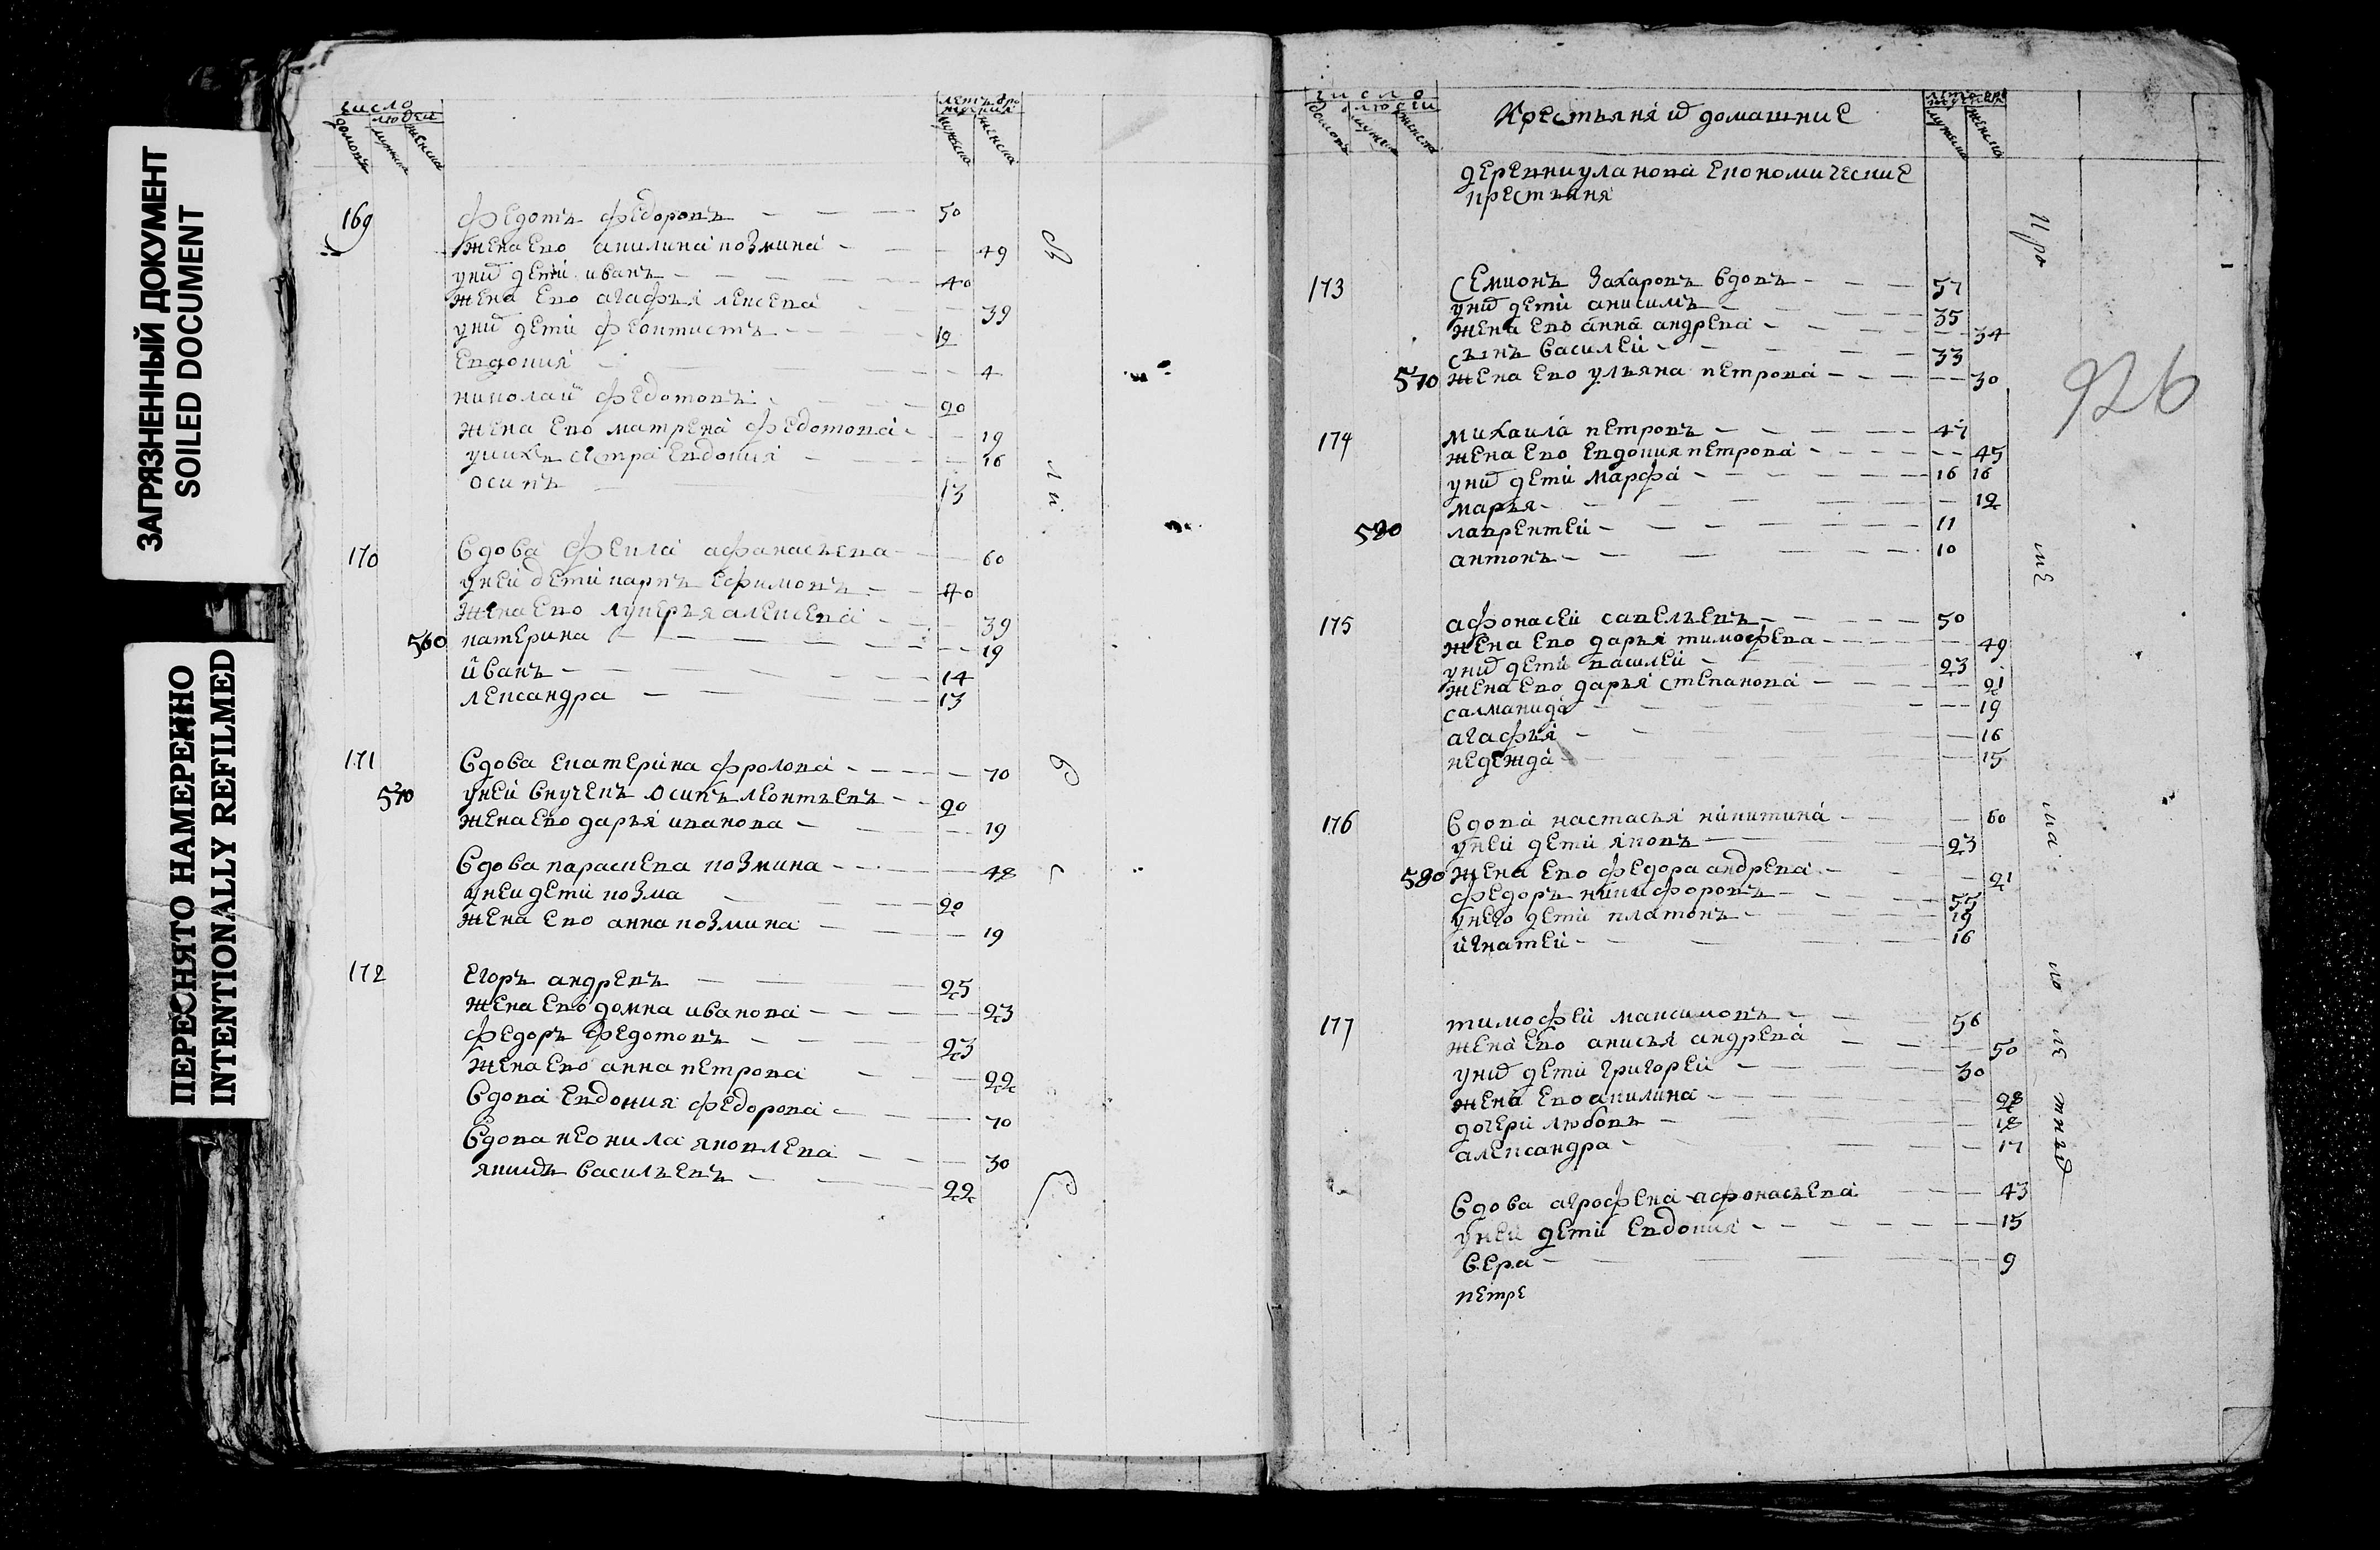 ЗАГРЯЗНЕННЫЙ ДОКУМЕНТ
SOILED DOCUMENT
ПЕРЕСНЯТО НАМЕРЕННО
INTENTIONALLY REFILMED
число
людей
домовъ
мужеска
женска
летъ от рождения
мужеска
женска
169 федотъ федоровъ 50
жена ево акилина козмина 49
унихъ дети иванъ 40
жена ево агафья алексева 39
унихъ дети феоктистъ 12
евдокия 4
николай федотовъ 20
жена ево матрена федотова 19
уních сестра евдокия 16
осипъ 13
170 вдова фекла афанасьева 60
уней дети карпъ ефимовъ 40
жена ево лукерья алексева 39
560 катерина 19
иванъ 14
лександра 13
171 вдова екатерина фролова 70
570 уней внучекъ осипъ леонтьевъ 20
жена ево дарья иванова 19
вдова параскева козмина 48
уней дети козма 20
жена ево анна козмина 19
172 егоръ андревъ 25
жена ево домна иванова 23
федоръ федотовъ 23
жена ево анна петрова 22
вдова евдокия федорова 70
вдова неонила яковлева 30
якимъ васильевъ 22
число
людей
домовъ
мужеска
женска
Крестьяня и домашние
летъ от рождения
мужеска
женска
926
деревни уланова економические
крестьяня
173 семионъ захаровъ вдовъ 57
унихъ дети анисимъ 35
жена ево анна андрева 34
сынъ василей 33
570 жена ево ульяна петрова 30
174 михаила петровъ 47
жена ево евдокия петрова 45
унихъ дети марфа 16 16
марья 12
580 лаврентей 11
антонъ 10
175 афонасей савельевъ 50
жена ево дарья тимофева 49
унихъ дети василей 23
жена ево дарья степанова 21
салманида 19
агафья 16
недежда 15
176 вдова настасья никитина 60
уней дети яковъ 23
580 жена ево федора андрева 21
федоръ никифоровъ 55
унего дети платонъ 19
игнатей 16
177 тимофей максимовъ 56
жена ево анисья андрева 50
унихъ дети григорей 30
жена ево акилина 28
дочери любовь 18
александра 17
вдова аграфена афонасьева 43
уней дети евдокия 15
вера 9
петре